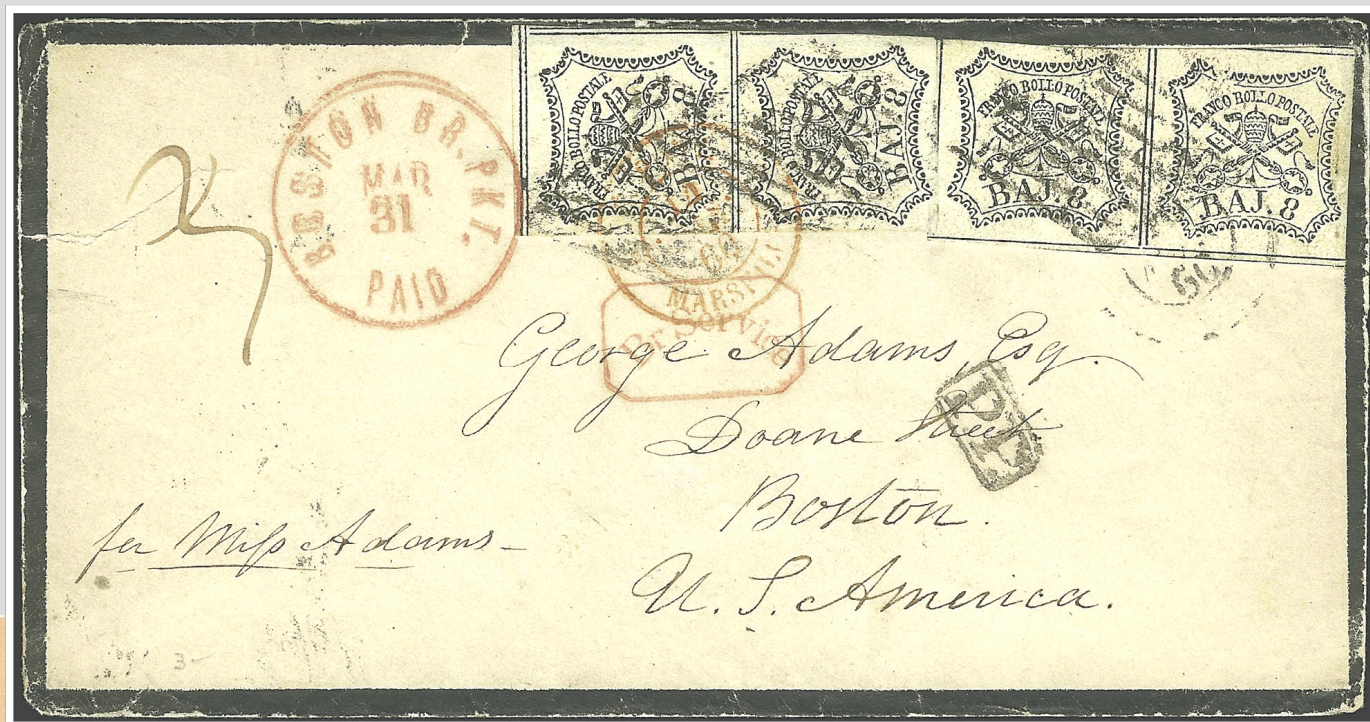 BOSTON BR. PKT.
MAR
31
PAID
FRANCO BOLLO POSTALE
BAJ. 8
FRANCO BOLLO POSTALE
BAJ. 8
FRANCO BOLLO POSTALE
BAJ. 8
FRANCO BOLLO POSTALE
BAJ. 8
60
MARS
60
Br. Service
George Adams, Esq.
PF
Doane Street
Boston.
for Miss Adams-
U. S. America.
3-